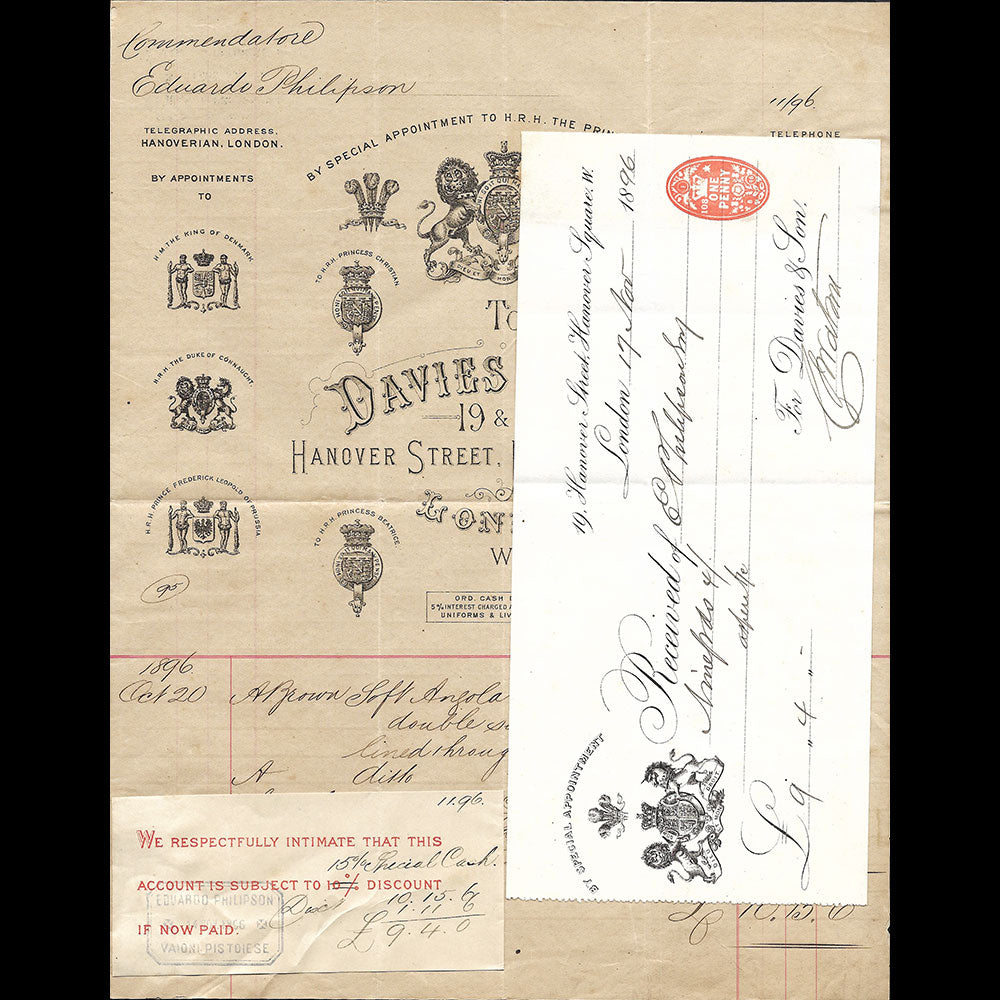 Commendatore
Eduardo Philipson
11/96.
TELEGRAPHIC ADDRESS,
HANOVERIAN, LONDON.
TELEPHONE
BY APPOINTMENTS
TO
BY SPECIAL APPOINTMENT TO H.R.H. THE PRIN
H.M. THE KING OF DENMARK
TO H.R.H. PRINCESS CHRISTIAN.
DIEU ET MON
H.R.H. THE DUKE OF CONNAUGHT.
To
DAVIES
19 &
HANOVER STREET,
LON
W
H.R.H. PRINCE FREDERICK LEOPOLD OF PRUSSIA
TO H.R.H. PRINCESS BEATRICE.
95
ORD. CASH
5% INTEREST CHARGED A
UNIFORMS & LIV
1896
Oct 20 A Brown Soft Angola
double
lined throug
A ditto
£ 10.15.6
11.96.
WE RESPECTFULLY INTIMATE THAT THIS
15% Special Cash.
ACCOUNT IS SUBJECT TO 10% DISCOUNT
10.15.6
Disc 1.11.6
IF NOW PAID.
£ 9.4.0
EDUARDO PHILIPSON
VAIONI-PISTOIESE
BY SPECIAL APPOINTMENT
19, Hanover Street, Hanover Square, W.
London 17 Nov 1896
Received of E Philipson Esq
Nine pds 4/
£ 9 " 4 " -
For Davies & Son.
108
ONE
PENNY